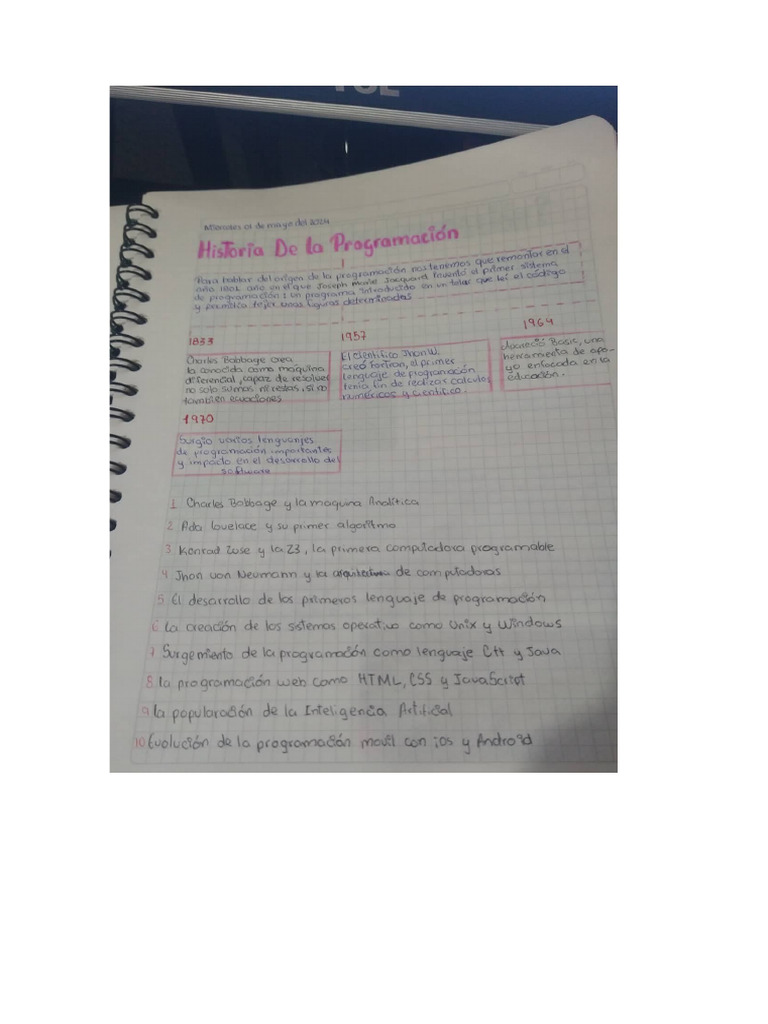 TCL
Miercoles 01 de mayo del 2024
Historia De la Programación
Para hablar del origen de la programación nos tenemos que remontar en el
año 1801, año en el que Joseph Marie Jacquard inventó el primer sistema
de programación: un programa introducido en un telar que leí el código
y permitía tejer unas figuras determinadas
1833
Charles Babbage crea
la conocida como maquina
diferencial, capaz de resolver
no solo sumas ni restas, si no
tambien ecuaciones
1957
El cientifico Jhon W.
creó Fortran, el primer
lenguaje de programación
tenia fin de realizar calculos
numéricos y cientifico.
1964
Apareció Basic, una
herramienta de apo-
yo enfocada en la
educación.
1970
Surgio varios lenguanjes
de programación importantes
y impacto en el desarrollo del
software
1 Charles Babbage y la maquina Analítica
2 Ada lovelace y su primer algoritmo
3 Konrad Zuse y la Z3, la primera computadora programable
4 Jhon von Neumann y la arquitectura de computadoras
5 El desarrollo de los primeros lenguaje de programación
6 La creación de los sistemas operativo como Unix y Windows
7 Surgemiento de la programación como lenguaje C++ y Java
8 la programación web como HTML, CSS y JavaScritot
9 la popularación de la Inteligencia Artificial
10 Evolución de la programación movil con ios y Android